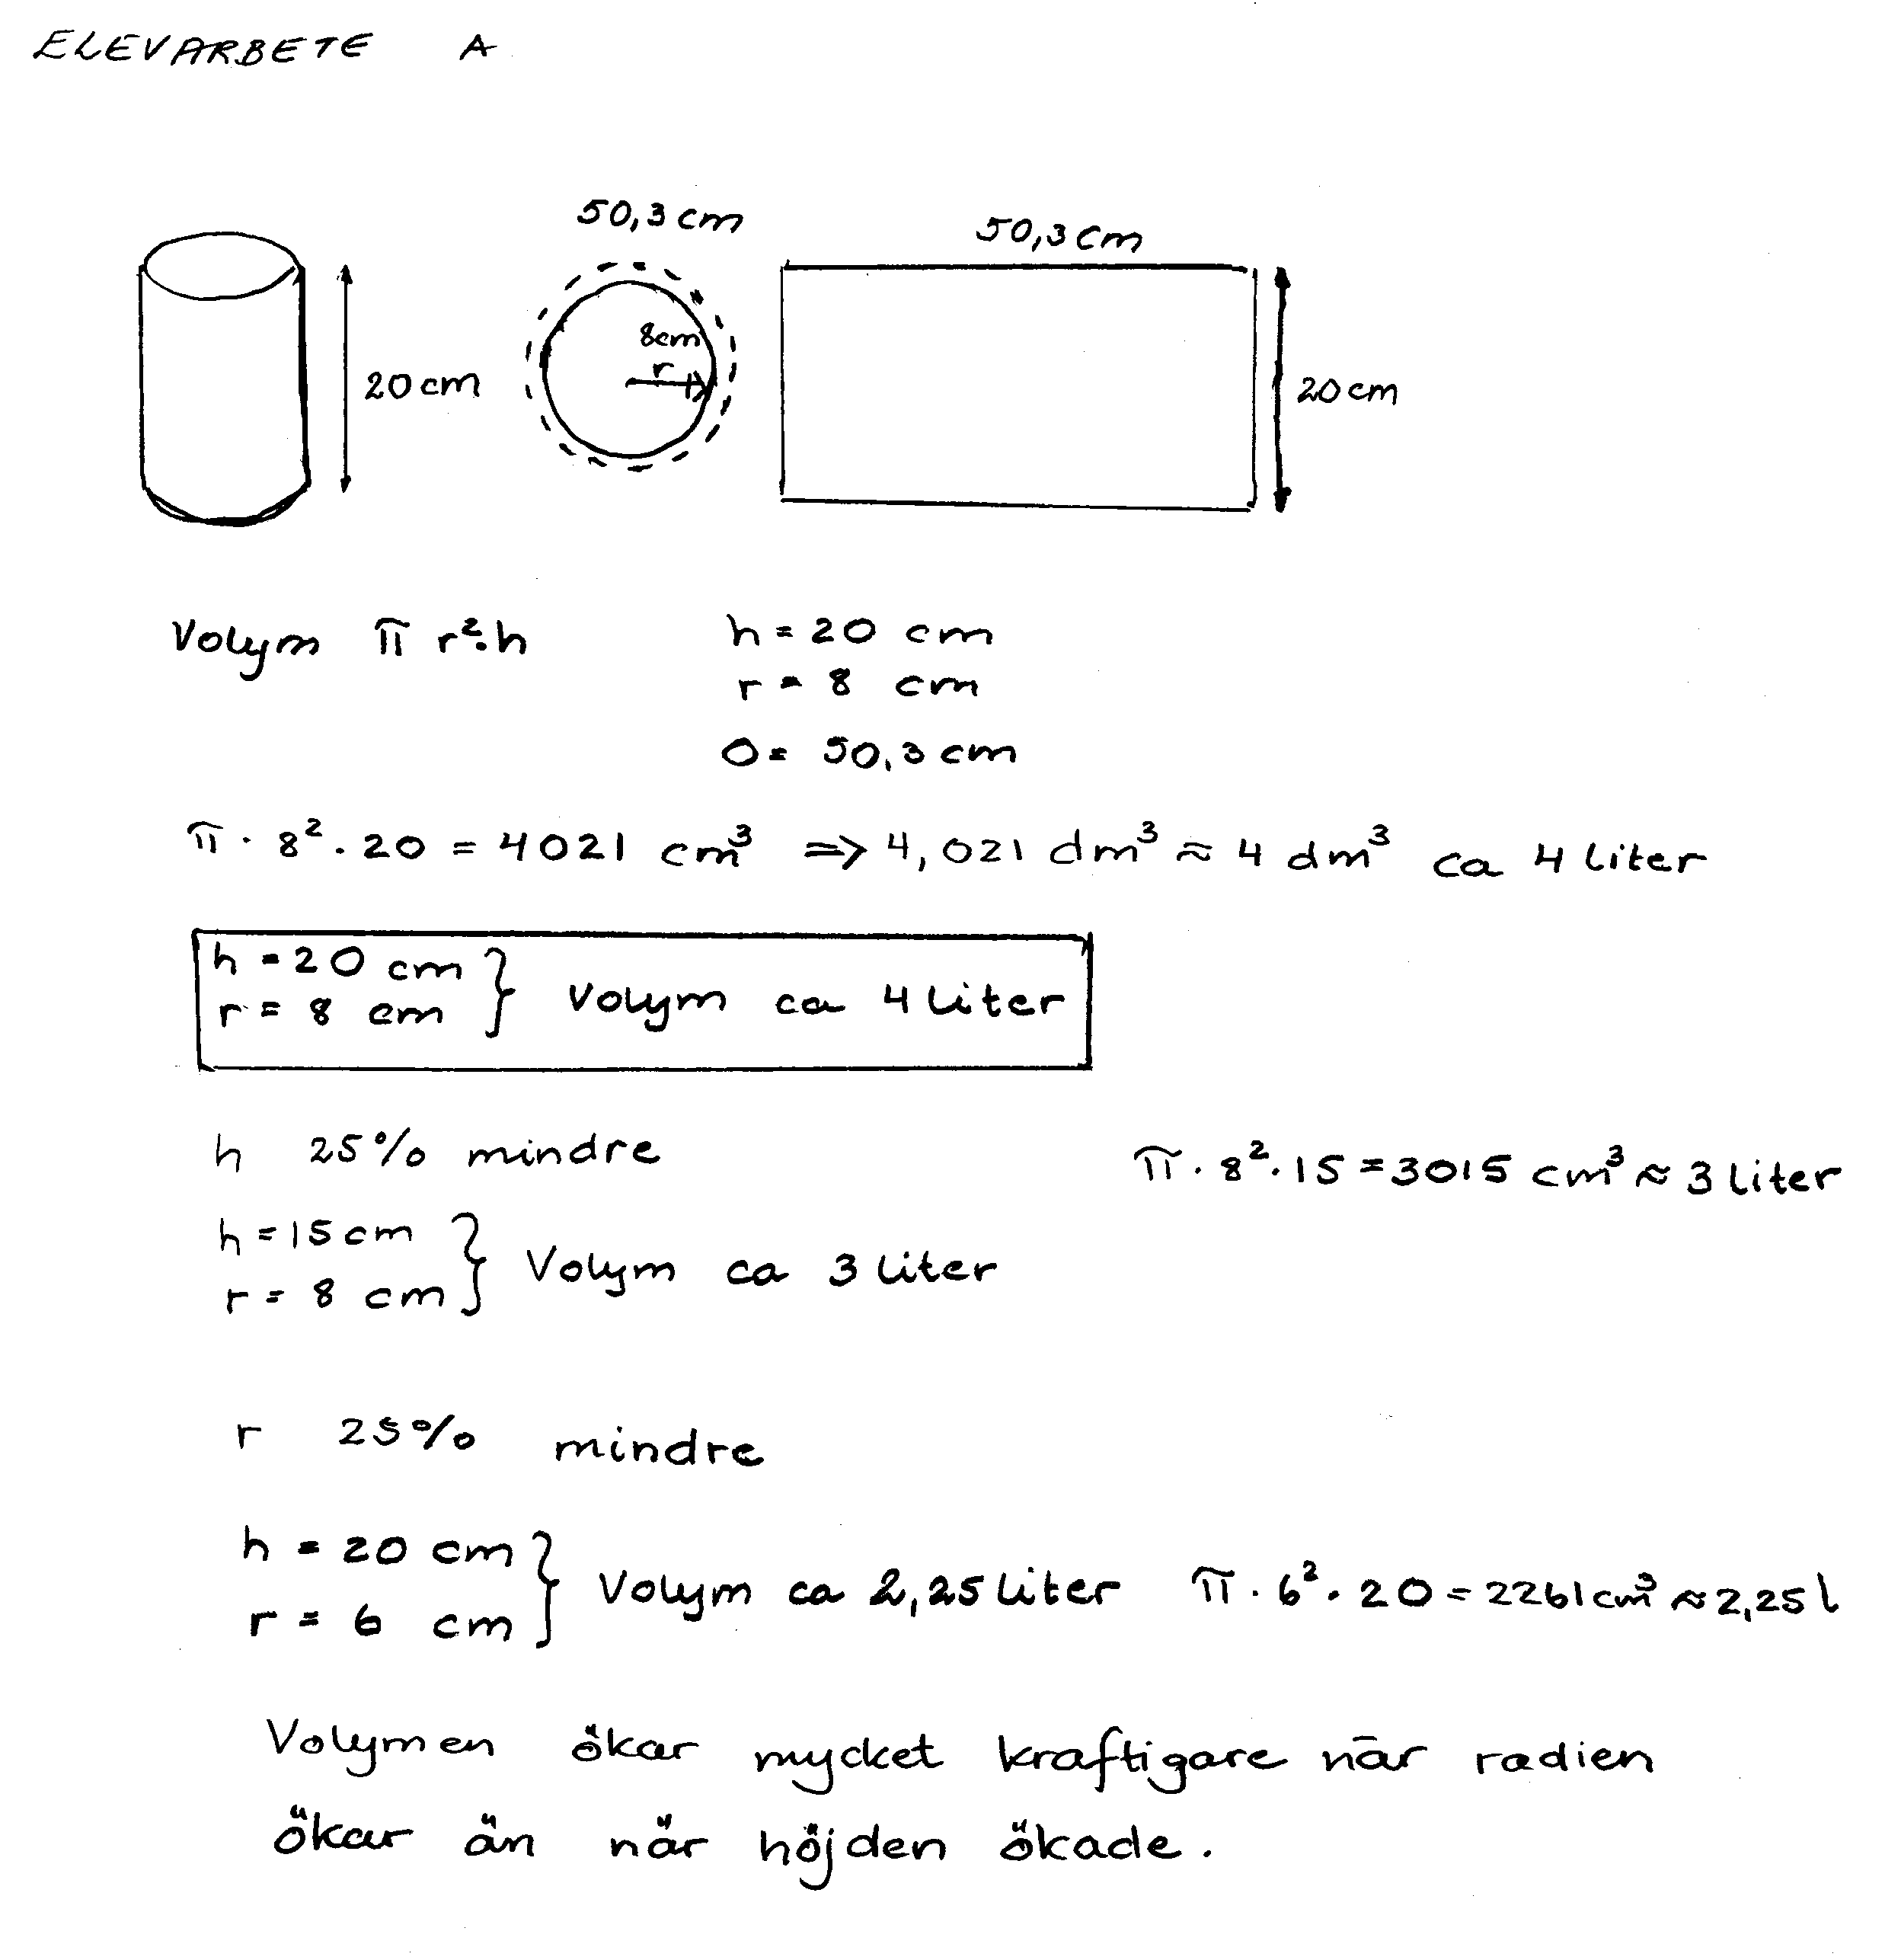 ELEVARBETE A
50,3 cm
50,3 cm
8cm
r
20 cm
20 cm
Volym π r²·h
h = 20 cm
r = 8 cm
O = 50,3 cm
π · 8² · 20 = 4021 cm³ => 4,021 dm³ ≈ 4 dm³ ca 4 liter
h = 20 cm
r = 8 cm } Volym ca 4 liter
h 25% mindre
π · 8² · 15 = 3015 cm³ ≈ 3 liter
h = 15 cm
r = 8 cm } Volym ca 3 liter
r 25% mindre
h = 20 cm
r = 6 cm } Volym ca 2,25 liter π · 6² · 20 = 2261 cm³ ≈ 2,25 l
Volymen ökar mycket kraftigare när radien
ökar än når höjden ökade.